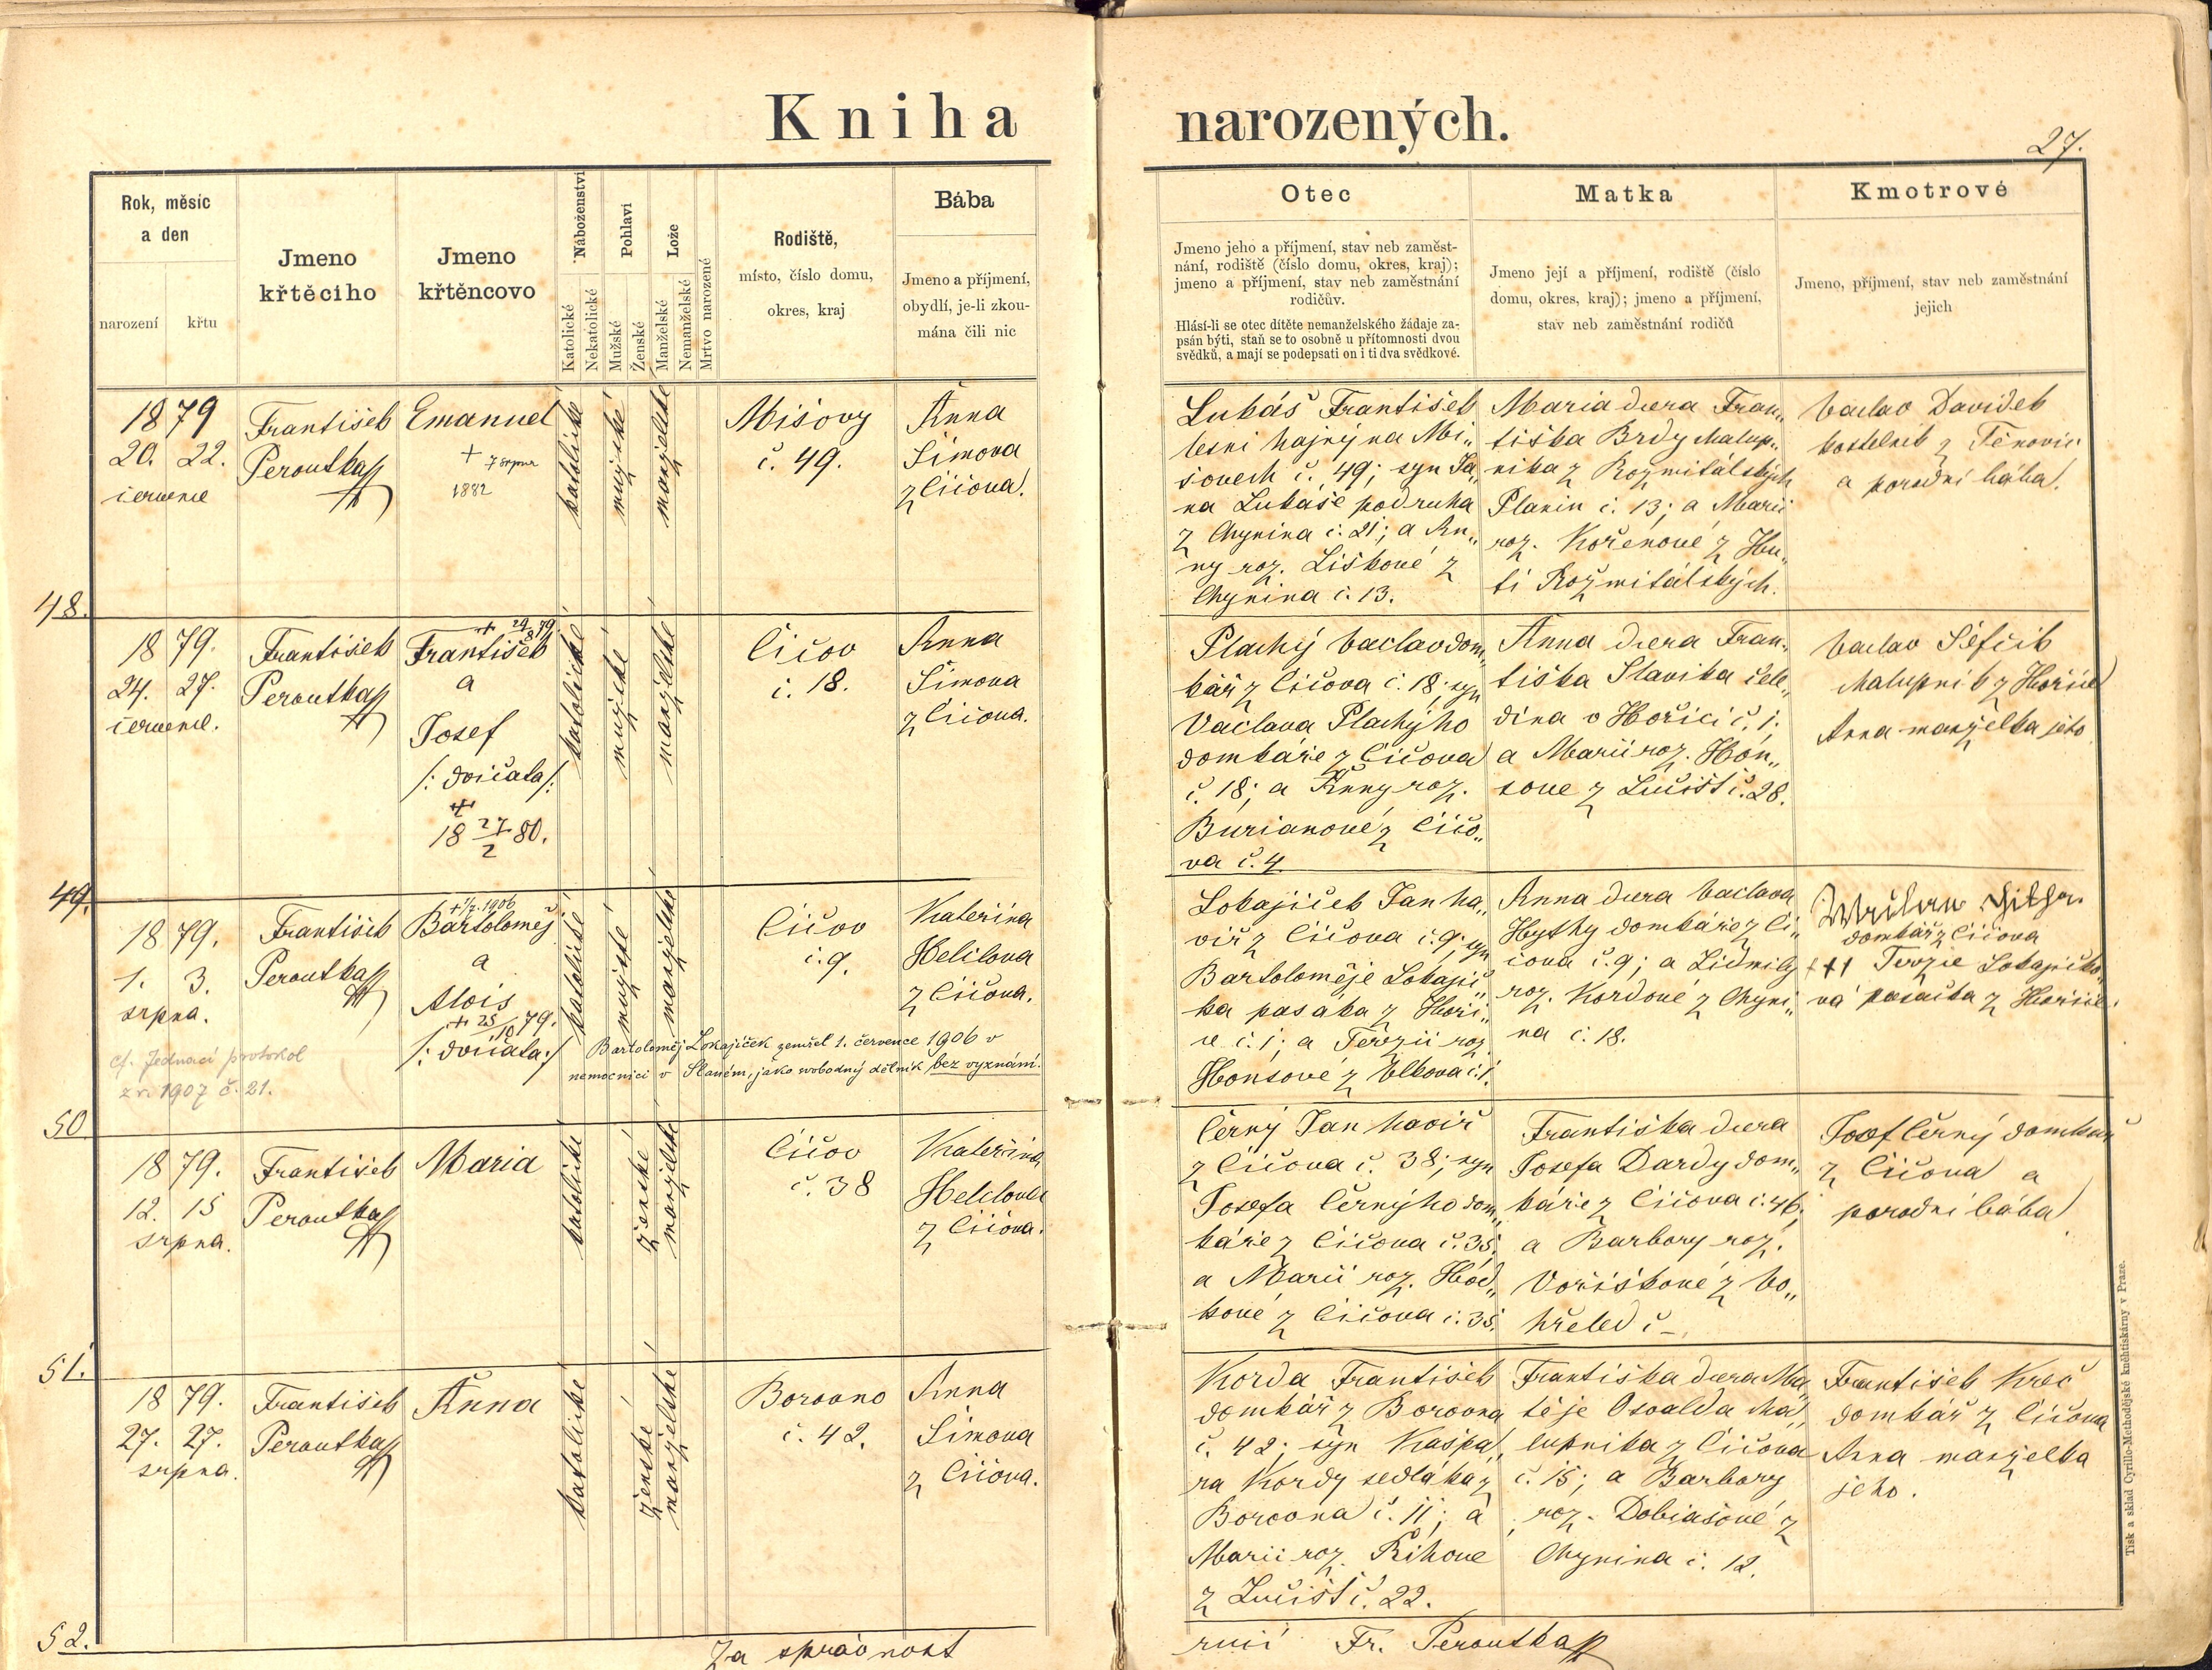 Kniha narozených.
27.
Rok, měsíc
a den
narození
křtu
Jmeno
křtěcího
Jmeno
křtěncovo
Náboženství
Katolické
Nekatolické
Pohlaví
Mužské
Ženské
Lože
Manželské
Nemanželské
Mrtvo narozené
Rodiště,
místo, číslo domu,
okres, kraj
Bába
Jmeno a příjmení,
obydlí, je-li zkou-
mána čili nic
Otec
Jmeno jeho a příjmení, stav neb zaměst-
nání, rodiště (číslo domu, okres, kraj);
jmeno a příjmení, stav neb zaměstnání
rodičův.
Hlásí-li se otec dítěte nemanželského žádaje za-
psán býti, staň se to osobně u přítomnosti dvou
svědků, a mají se podepsati on i ti dva svědkové.
Matka
Jmeno její a příjmení, rodiště (číslo
domu, okres, kraj); jmeno a příjmení,
stav neb zaměstnání rodičů
Kmotrové
Jmeno, příjmení, stav neb zaměstnání
jejich
48.
1879
20. 22.
července
František
Peroutka
Emanuel
+ 7 srpna
1882
katolické
mužské
manželské
Mišovy
č. 49.
Anna
Šimova
z Čičova.
Lukáš František
lesní hajný na Mi„
šovech č. 49; syn Ja„
na Lukáše podruha
z Chynína č. 21; a An„
ny roz. Liškové z
Chynína č. 13.
Maria dcera Fran„
tiška Brdy chalup„
níka z Rožmitálských
Planin č. 13; a Marii
roz. Kořenové z Hu„
tí Rožmitálských.
Václav Davídek
kostelník z Těnovic
a porodní bába.
49.
1879.
24. 27.
července.
František
Peroutka
+ 29/8 79
František
a
Josef
/: dvíčata :/
+
18 27/2 80.
katolické
mužské
manželské
Čičov
č. 18.
Anna
Šimova
z Čičova.
Plachý Václav dom„
kář z Čičova č. 18; syn
Václava Plachýho
domkáře z Čičova
č. 18; a Anny roz.
Burianové z Čičo„
va č. 4
Anna dcera Fran„
tiška Slavíka čele„
dína v Hořici č. 1.
a Marii roz. Hon„
sové z Lučišť č. 28.
Václav Šefčík
chalupník z Hořice
Anna manželka jeho
50.
1879.
1. 3.
srpna.
cf. Jednací protokol
z r. 1907 č. 21.
František
Peroutka
+ 1/7. 1906
Bartoloměj
a
Alois
+ 25/10 79.
/: dvíčata :/
katolické
mužské
manželské
Čičov
č. 9.
Kateřina
Helclova
z Čičova.
Bartoloměj Lokajíček zemřel 1. července 1906 v
nemocnici v Slaném, jako svobodný dělník bez vyznání.
Lokajíček Jan ha„
víř z Čičova č. 9; syn
Bartoloměje Lokajíč„
ka pasáka z Hoři„
ce č. 1; a Terezii roz.
Honsové z Vlkova č. 1.
Anna dcera Václava
Hythy domkáře z Či„
čova č. 9; a Lidmily
roz. Kordové z Chyní„
na č. 18.
domkář z Čičova
+++ Terezie Lokajíčko„
vá pasačka z Hořice.
51.
1879.
12. 15
srpna.
František
Peroutka
Maria
katolické
ženské
manželské
Čičov
č. 38
Kateřina
Helclova
z Čičova.
Černý Jan havíř
z Čičova č. 38; syn
Josefa Černýho dom„
káře z Čičova č. 35.
a Marii roz. Hod„
kové z Čičova č. 35.
Františka dcera
Josefa Dardy dom„
káře z Čičova č. 46;
a Barbory roz.
Voříškové z Vo„
křeled č –
Josef Černý domkář
z Čičova a
porodní bába
52.
1879.
27. 27.
srpna.
František
Peroutka
Anna
katolické
ženské
manželské
Borovno
č. 42.
Anna
Šimova
z Čičova.
Korda František
domkář z Borovna
č. 42; syn Kašpa„
ra Kordy sedláka z
Borovna č. 11; a
Marii roz. Říhove
z Lučišť č. 22.
Františka dcera Ma„
těje Osvalda cha„
lupníka z Čičova
č. 15; a Barbory
roz. Dobiašové z
Chynína č. 12.
František Kreč
domkář z Čičova
Anna manželka
jeho.
Za správnost ručí Fr. Peroutka
Tisk a sklad Cyrillo-Methodějské kněhtiskárny v Praze.